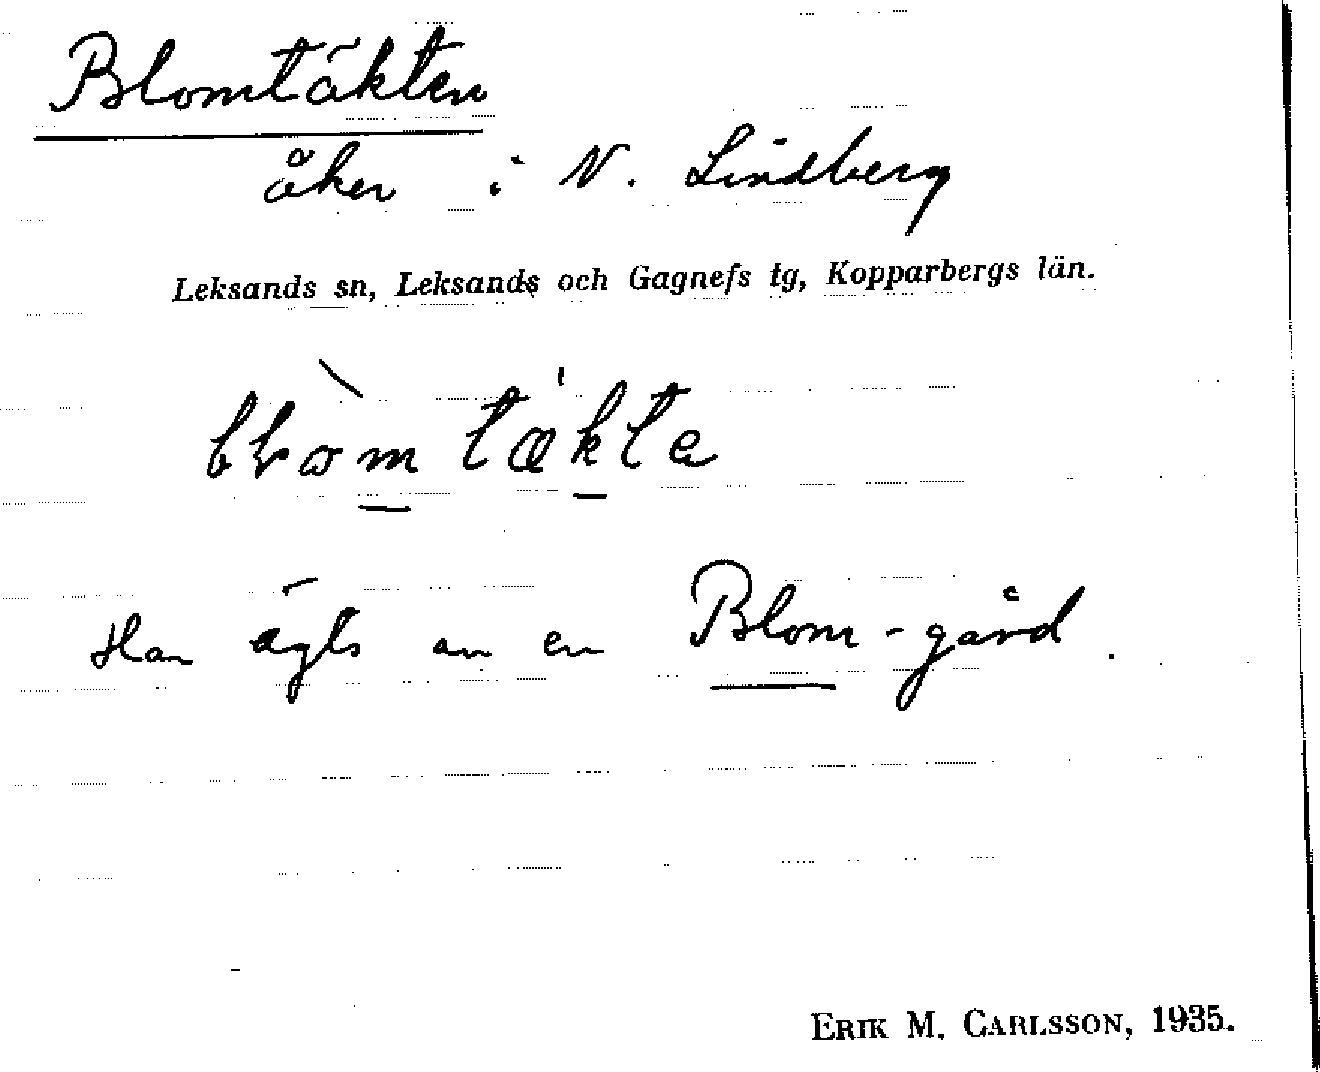 Blomtäkten
åker i N. Lindberg
Leksands sn, Leksands och Gagnefs tg, Kopparbergs län.
Har ägts av en Blom-gård.
ERIK M. CARLSSON, 1935.